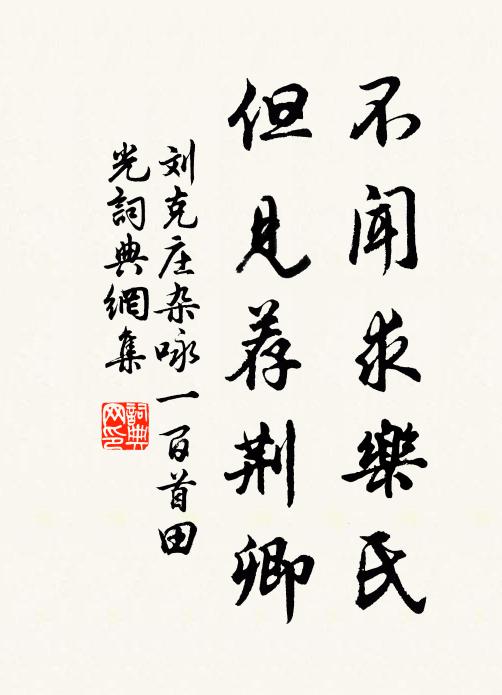 不闻求樂氏
但見荐荆卿
刘克庄杂咏一百首田
光詞典網集
詞典
网印